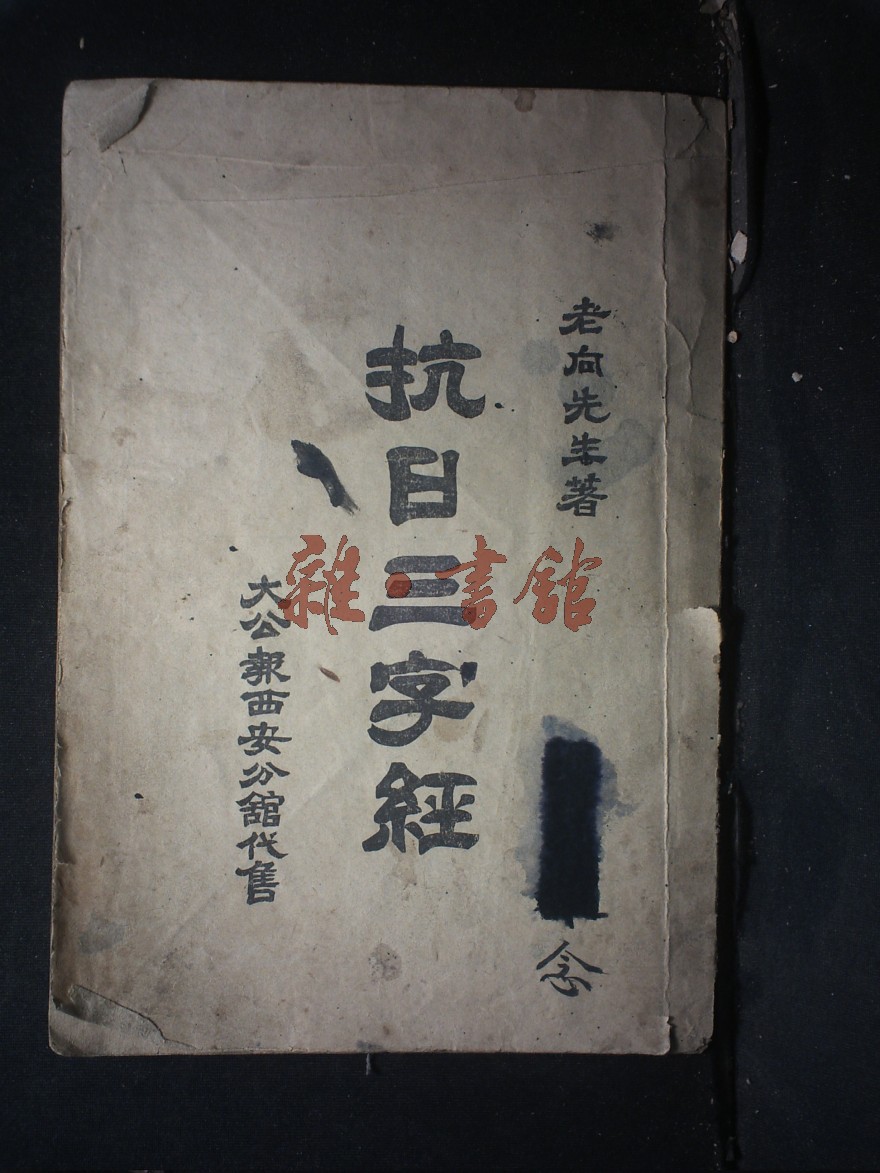 老向先生著
念
抗日三字經
大公報西安分館代售
雜·書館